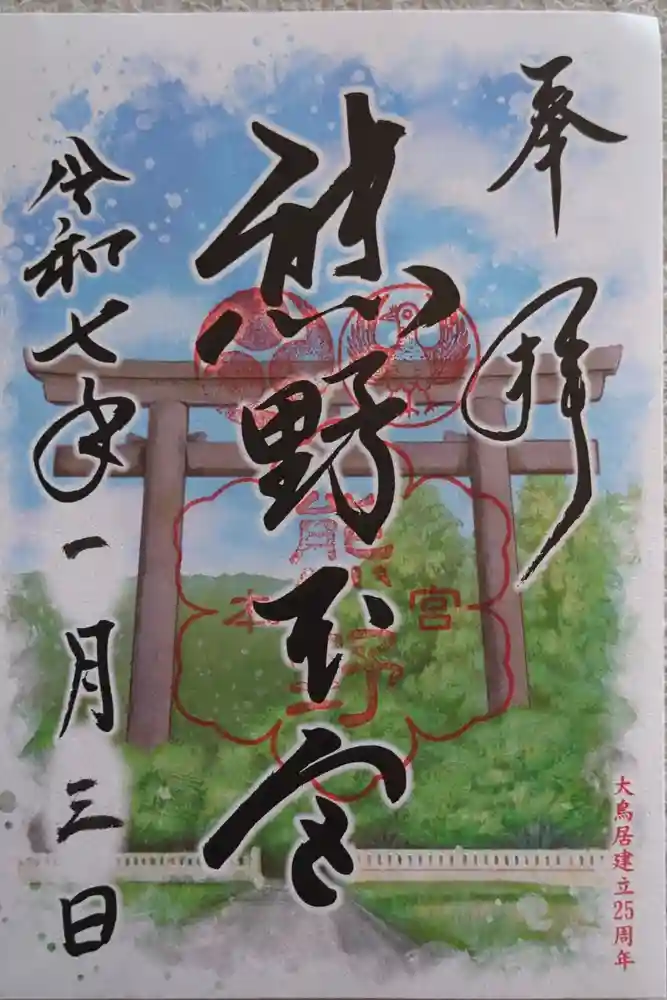 奉拝
熊野本宮
熊野
本宮
令和七年一月三日
大鳥居建立25周年